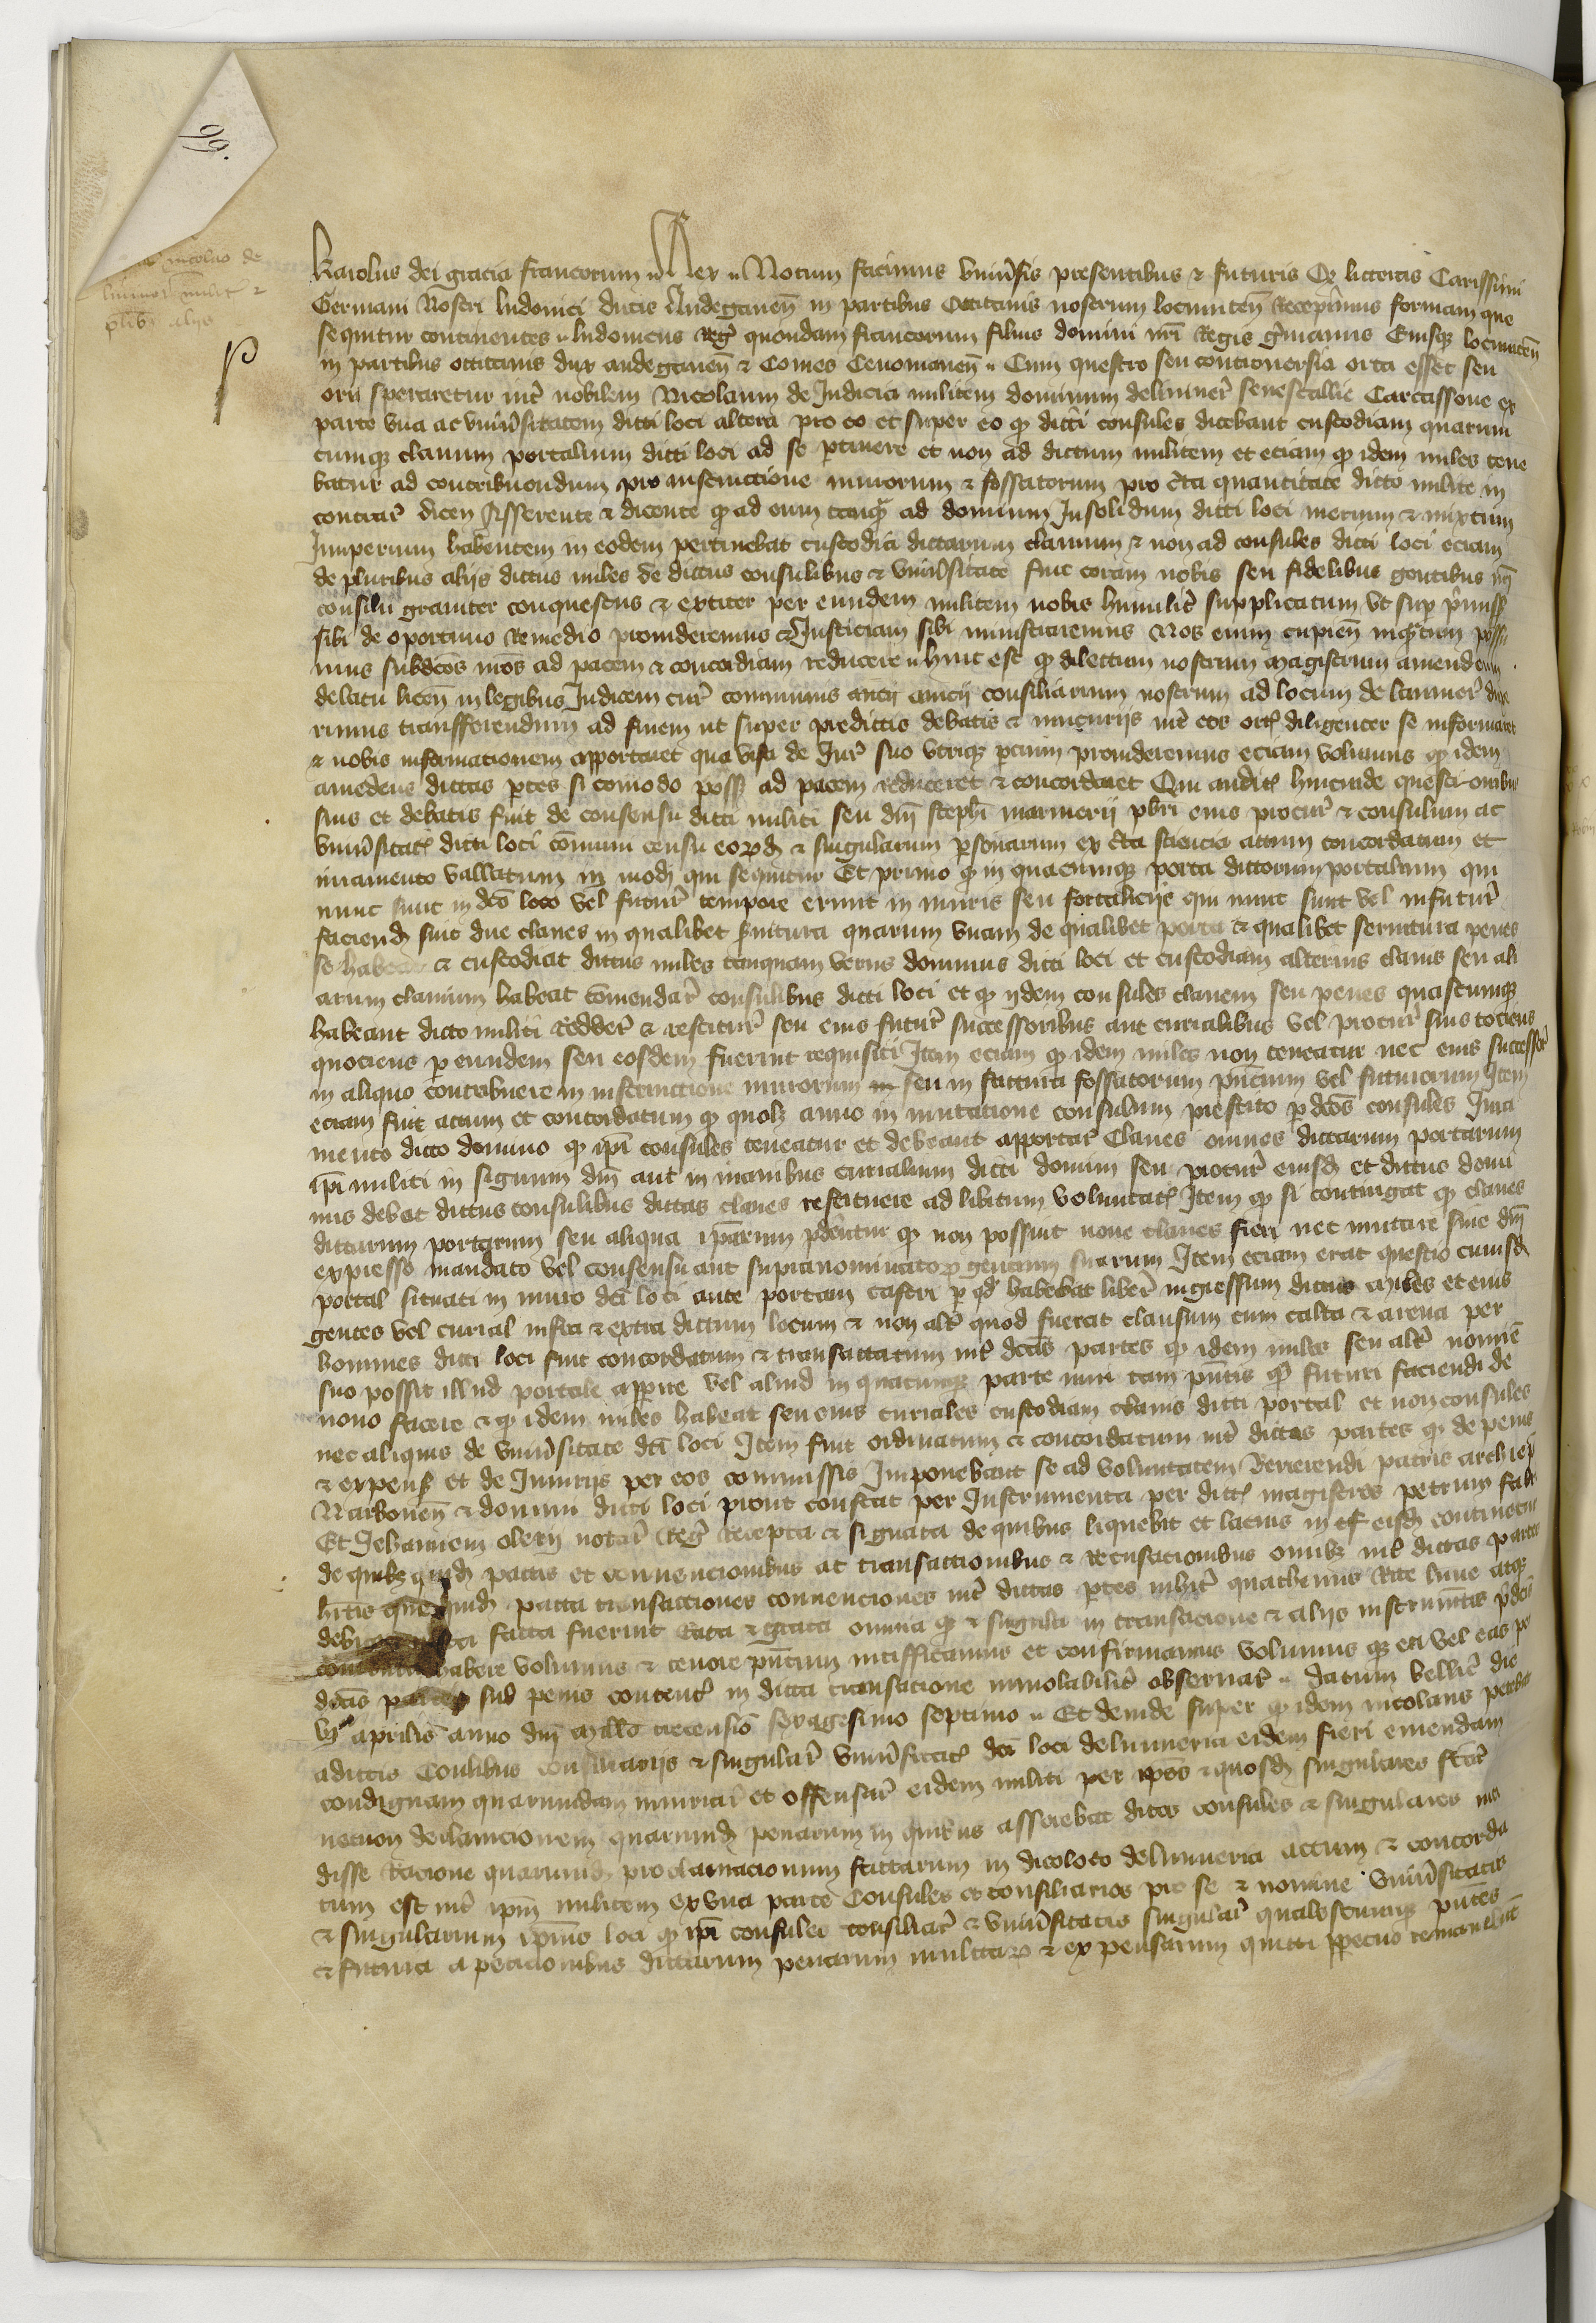 99.
nicolao de
milit &
plib alijs
Karolus dei gracia francorum Rex Notum facimus vniũsis presentibus & futuris Qz litteras Carissimi
Germani Nostri ludouici ducis Andegaueñ in partibus Occitanis nostrum locumteneñ Recepimus formam que
sequitur continentes ludouicus Reg̃ quondam francorum filius domini nr̃i Regis g̃manus Eiusqz locumteñ
in partibus occitanis dux andegaueñ & Comes Cenomaneñ Cum questio seu controuersia orta esset seu
oriri speraretur int̃ nobilem Nicolaum de Judicia militem dominum de liuiner̃ senescallie Carcassone ex
parte vna ac vniũsitatem dicti loci altera pro eo et super eo qz dicti consules dicebant custodiam quarum
cumqz clauium portalium dicti loci ad se ptinere et non ad dictum militem et eciam qz idem miles tene
batur ad contribuendum pro instructione murorum & fossatorum pro c̃ta quantitate dicto milite in
contrar̃ dicen Asserente & dicente qz ad eum tanqz̃ ad dominum Insolidum dicti loci merum & mixtum
Imperium habentem in eodem pertinebat custodia dictarum clauium & non ad consules dicti loci eciam
de pluribus alijs dictus miles de dictis consulibus & vniũsitate fuit coram nobis seu fidelibus gentibus nr̃i
consilii grauiter conquestus & extiter per eundem militem nobis humilit̃ supplicatum vt sup p̃miss
sibi de oportuno Remedio prouideremus & Justiciam sibi ministraremus Nos enim cupieñ inqz̃tum possu
mus subdic̃os nr̃os ad pacem & concordiam reducere hinc est qz dilectum nostrum magistrum amedeum
delatu licen in legibus Judicem cur̃ communis anicij consiliarium nostrum ad locum de liuiner̃ duxe
rimus transferendum ad finem ut super predictis debatis & iniurijs int̃ eos ort diligenter se informaret
& nobis informacionem apportaret qua visa de Jur̃ suo vtriqz parcium prouideremus eciam volumus qz idem
amedeus dictas ptes si comodo poss ad pacem reduceret & concordaret Qui audit hincinde questionibus
suis et debatis fuit de consensu dicti militi seu dñi steph̃i marinerij pb̃ri eius procur̃ & consulum ac
vniũsitat dicti loci com̃uni censu eorumdz & singularum psonarum ex c̃ta sciencia actum concordatum et
iuramento vallatum in modz qui sequitur Et primo qz in quacumqz porta dictorum portalium qui
nunc sunt in dc̃o loco vel futur̃ tempore erunt in muris seu fortaliciis qui nunc sunt vel in futur̃
faciendz sint due claues in qualibet s̃nitura quarum vnam de qualibet porta & qualibet sernitura penes
se habeat & custodiat dictus miles tanquam verus dominus dicti loci et custodiam alterius clauis seu ali
arum clauium habeat com̃endar̃ consulibus dicti loci et qz ijdem consules clauem seu penes quascumqz
habeant dicto militi Redder̃ & restituer̃ seu eius futur̃ successoribus aut curialibus vel procur̃ suis tociens
quociens p eundem seu eosdem fuerint requisiti Item eciam qz idem miles non teneatur nec eius successor̃
in aliquo contribuere in instructione murorum seu in factura fossatorum pñcium vel futurorum Item
eciam fuit actum et concordatum qz quolz anno in mutatione consulum prestito p dc̃os consules Jura
mento dicto domino qz ip̃i consules teneatur et debeant apportar̃ Claues omnes dictarum portarum
ip̃i militi in signum dñi aut in manibus curialium dicti domini seu procur̃ eiusdz et dictus domi
nus debet dictis consulibus dictas claues restituere ad libitum voluntat Item qz si contingat qz claues
dictarum portarum seu aliqua ip̃arum p̃dentur qz non possint noue claues fieri nec mutare sine dñi
expresso mandato vel consensu aut supranominatorum gencium suarum Item eciam erat questio cuiusdz
portal situati in muro dc̃i loci ante portam castri p qd̃ habebat liber̃ ingressum dictus miles et eius
gentes vel curial infra & extra dictum locum & non alit̃ quod fuerat clausum cum calce & arena per
homines dicti loci fuit concordatum & transactatum int̃ dc̃as partes qz idem miles seu alt̃ nomiñe
suo possit illud portale apperire vel aliud in quacumqz parte muri tam pñtis qz̃ futuri faciendi de
nouo facere & qz idem miles habeat seu eius curiales custodiam clauis dicti portal et non consules
nec aliquis de vniũsitate dc̃i loci Item fuit ordinatum & concordatum int̃ dictas partes qz de penis
& expensz et de Iniurijs per eos commissis Imponebant se ad voluntatem Reuerendi patris archiep̃i
Narboneñ & domini dicti loci prout constat per Instrumenta per dict magistros petrum fabri
Et Johannem olerij notar̃ Reg̃ Recepta & signata de quibus liquebit et lacius in eisdz continetur
de quibz quidz pactis et conuencionibus ac transactionibus & Recusacionibus omibz int̃ dictas partes
hitis quequidz pacta transactiones conuenciones int̃ dictas ptes inhit̃ quathenus Rite lune atqz
facta fuerint Rata & grata omnia qz & singula in transacione & alijs instrumẽtis p̃dc̃is
habere volumus & tenore pñcium ratifficamus et confirmamus volumus qz eti vel eas per
dc̃as partes sub penis content̃ in dicta transacione inuiolabilit̃ obseruar̃ datum bellic̃ die
aprilis anno dñi millo trecenso sexagesimo septimo Et deinde super qz idem nicolaus petebat
adictis Coulibus consiliarijs & singular̃ vniũsitat dc̃i loci deliuineria eidem fieri emendam
condignam quarumdam iniuriar̃ et offensar̃ eidem militi per ip̃os & quosdz singulares fact̃
necnon declaracionem quarumdz penarum in quibus asserebat dictos consules & singulares inci
disse Racione quarumdz proclamacionum factarum in dicoloco deliuineria actum & concorda
tum est int̃ ip̃m militem ex vna parte Consules et consiliarios pro se & nomine vniũsitatis
& singularium ip̃ius loci qz ip̃i consules consiliar̃ & vniũsitatis singular̃ qualescumqz pñtes
& futura apeticionibus dictarum penarum mulctarum & expensarum quitti ppetuo remanebunt